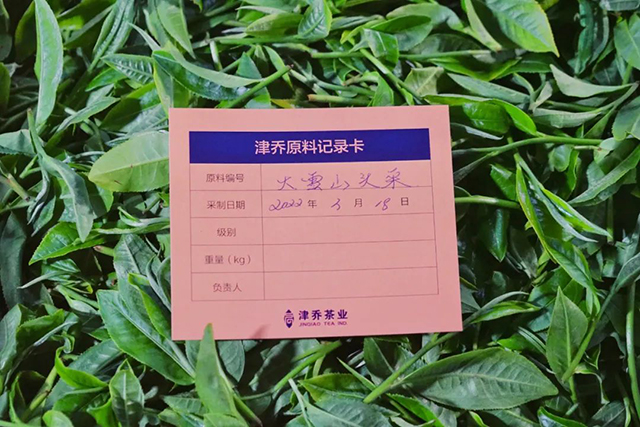 津乔原料记录卡
原料编号 大雪山头采
采制日期 2022年3月18日
级别
重量（kg）
负责人
津乔茶业
JINQIAO TEA IND